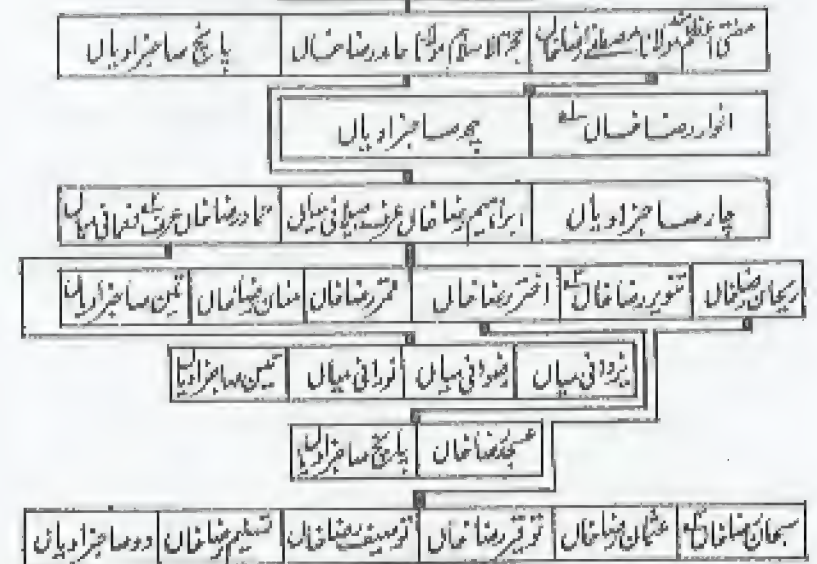 مفتی اعظم ہند مولانا مصطفےٰ رضا خاں حجۃ الاسلام مولانا حامد رضا خاں پانچ صاحبزادیاں
انوار رضا خاں چھ صاحبزادیاں
چار صاحبزادیاں ابراہیم رضا خاں عرف جیلانی میاں حماد رضا خاں عرف نعمانی میاں
ریحان رضا خاں تنویر رضا خاں اختر رضا خاں قمر رضا خاں منان رضا خاں تین صاحبزادیاں
یزدانی میاں رضوانی میاں نورانی میاں تین صاحبزادیاں
عسجد رضا خاں پانچ صاحبزادیاں
سبحان رضا خاں عثمان رضا خاں توقیر رضا خاں توصیف رضا خاں تسلیم رضا خاں دو صاحبزادیاں